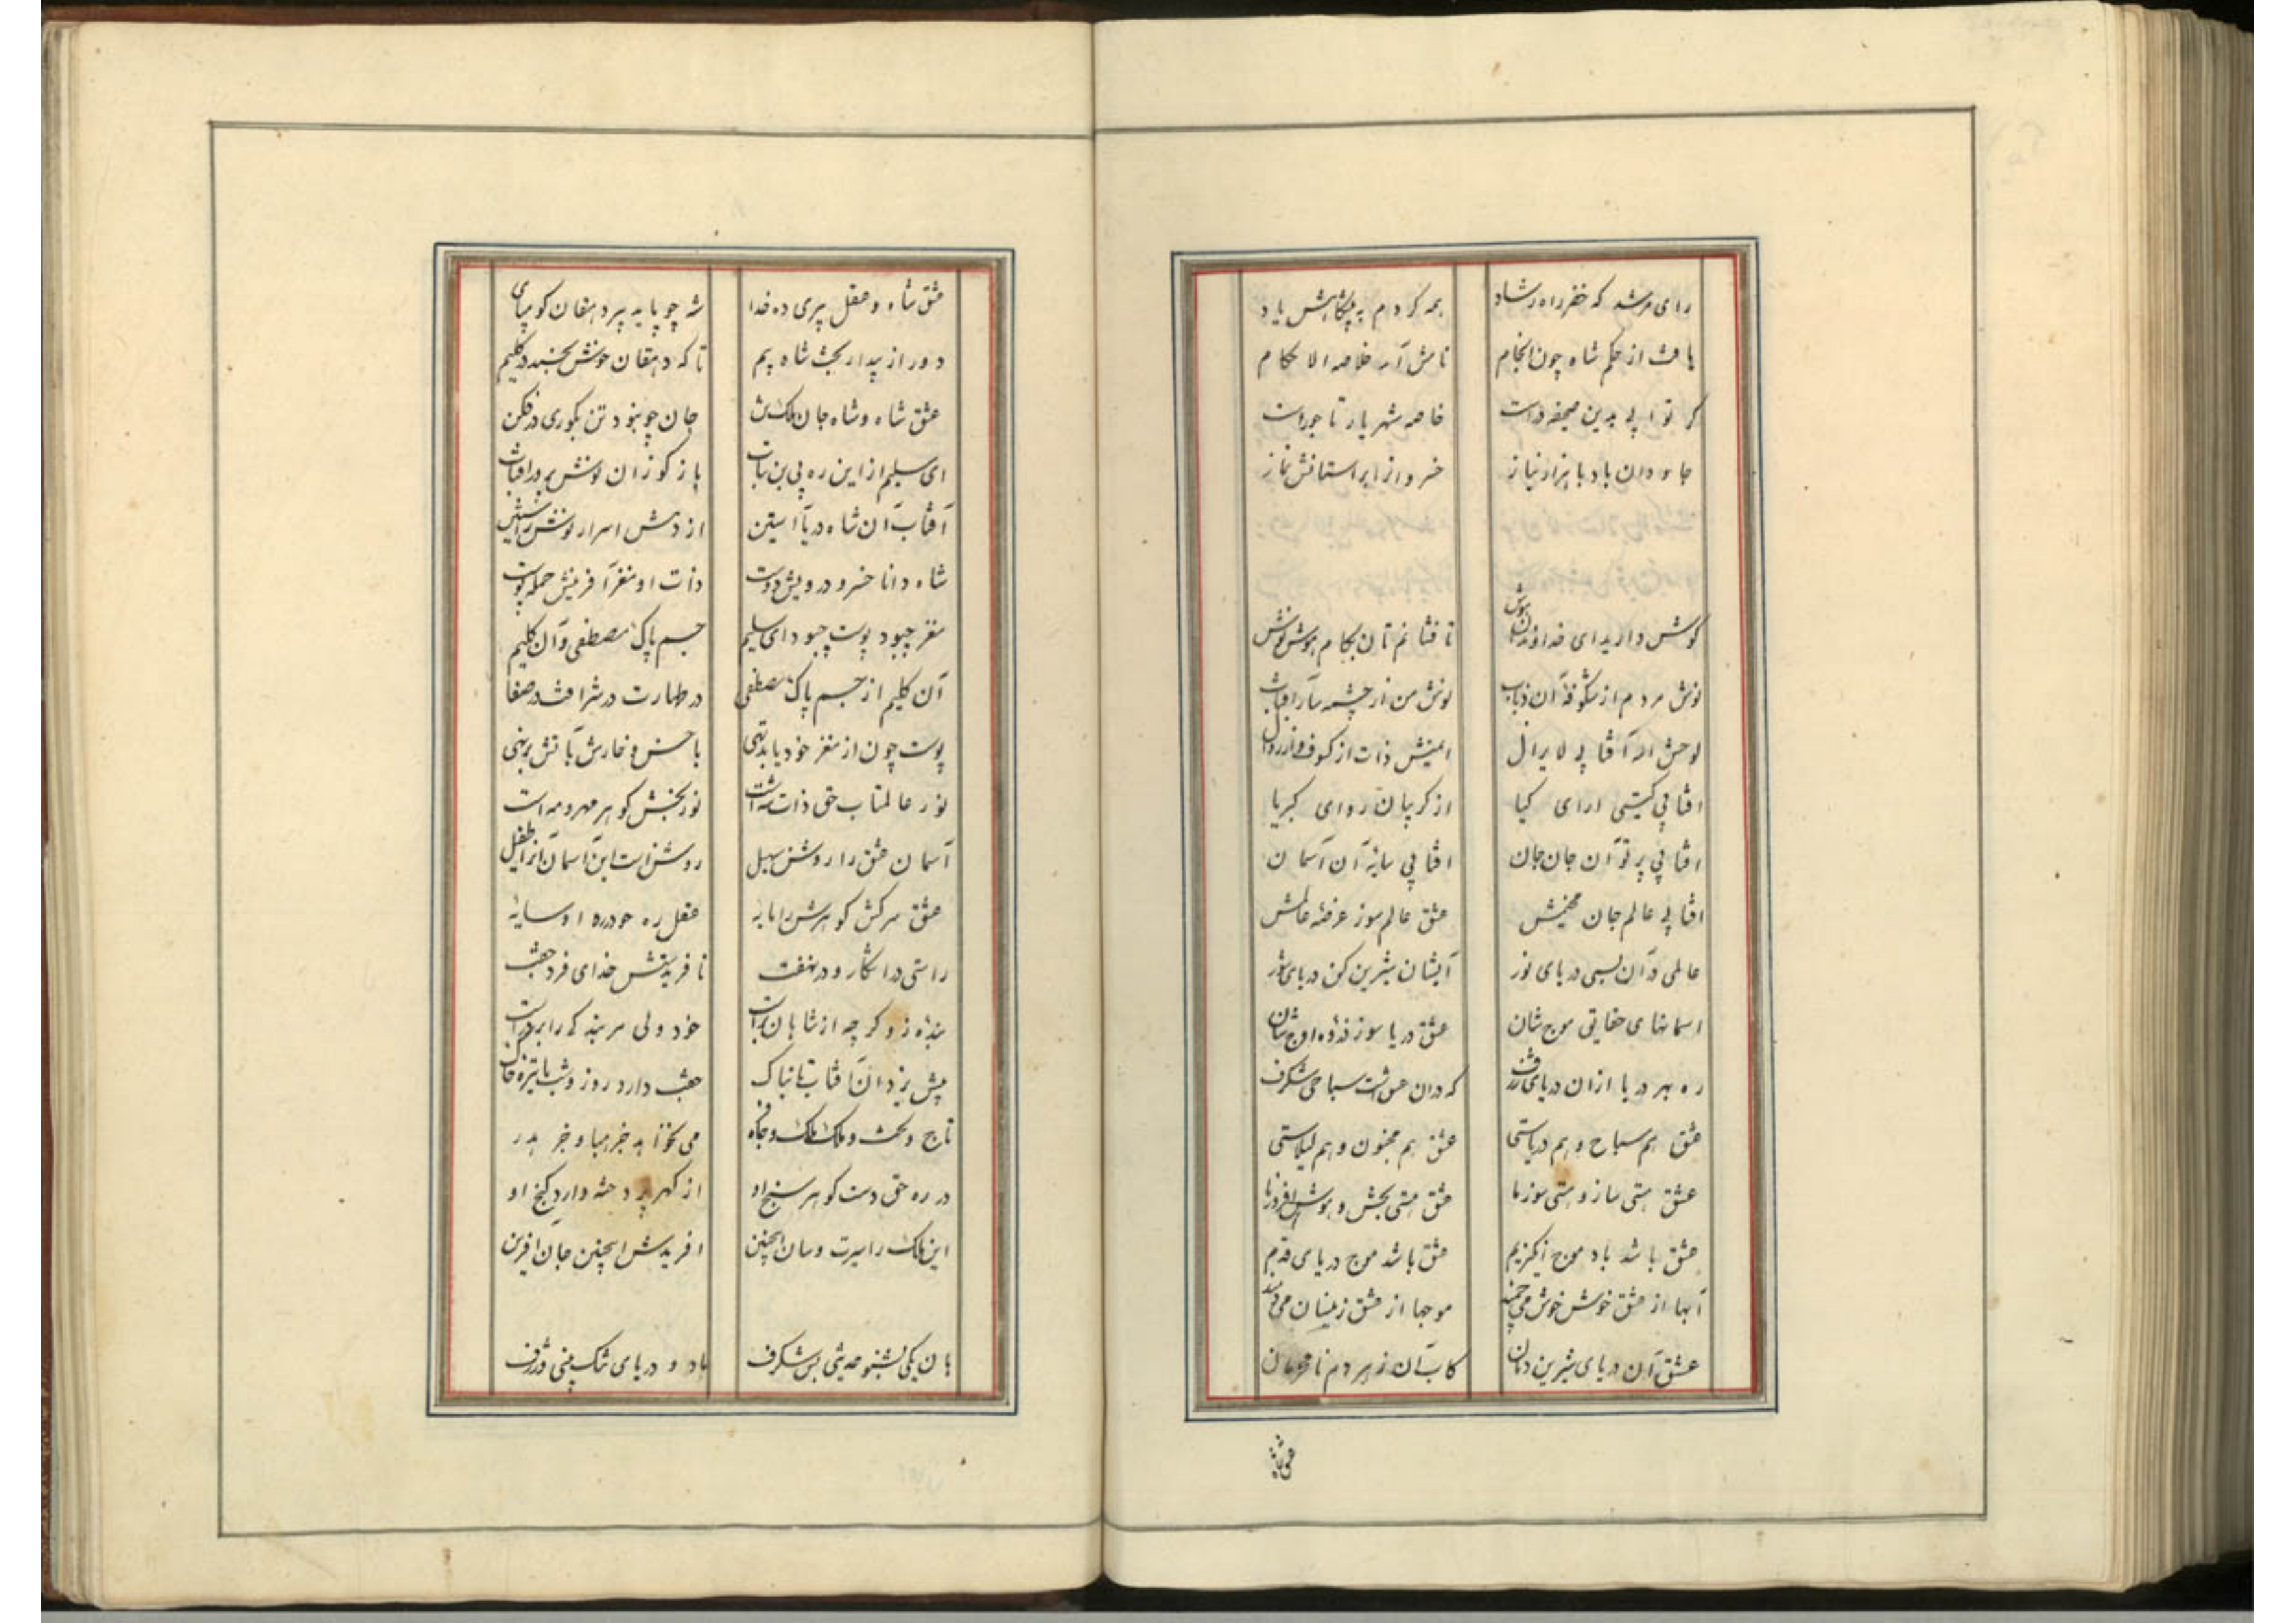 رای مرشد که خضر راه رشاد همه کردم به پیشگاهش یاد
یافت از حکم شاه چون انجام نامش آمد خلاصه الاحکام
جاودان باد با هزار نیاز خسروانرا بر استانش نماز
گوش دارید ای خداوندان هوش تا فشانم تان بکام هوش نوش
نوش مردم از شکوفه آن ذباب نوش من از چشمه سار آفتاب
لوحش اله آفتابی لایزال ایمنش ذات از کسوف و از زوال
افتابی گیتی ارای کیا از کریبان ردای کبریا
افتابی پرتو آن جان جان افتابی سایۀ آن آسمان
افتابی عالم جان عشق عالم سوز
عالمی در آن بسی دریای نور آبشان شیرین کن دریای شور
اسمانهای حقایق موج شان عشق دریا سوز ذروه اوج شان
ره بهر دریا ازان دریای ژرف که دران عشقست سباحی شکرف
عشق هم سباح و هم دریاستی عشق هم مجنون و هم لیلاستی
عشق هستی ساز و هستی سوز ما عشق مستی بخش و هوش افروز ما
عشق باشد باد موج انگیز یم عشق باشد موج دریای قدم
آبها از عشق خوش خوش می جهند موجها از عشق زینسان می دمند
عشق آن دریای شیرین دان کاب آن زهر دم نامحرمان
عشق شاه و عقل پیری ده خدا شه چو پا به پیر دهقان کو مپای
دور از بیدار بخت شاه بیم تا که دهقان خوش بخسبد در کلیم
عشق شاه و شاه جان ملک تن جان چو نبود تن بگوری در فکن
ای سلیم از این ره بی بن بتاب باز کو زان نوش پرور افتاب
آفتاب آن شاه دریا آستین از دمش اسرار نوش راستین
شاه دانا خسرو درویش دوست ذات او مغز آفرینش جمله پوست
مغز چبود پوست چبود ای سلیم جسم پاک مصطفی و آن کلیم
آن کلیم از جسم پاک مصطفی در طهارت در شرافت در صفا
پوست چون از مغز خود یابد تهی با خس و خارش بآتش برنهی
نور عالمتاب حق ذات شه است نوربخش گوهر مهر و مه است
آسمان عشق را روشن سهیل روشن است این آسمان آنرا طفیل
عشق سرکش گو هرش را مایه عقل ره او سایۀ
راستی در اشکار و در نهفت نافریدستش خدای فرد جفت
بنده زو گرچه از شاهان براست خود ولی هر بنده را برادر است
پیش یزدان آفتاب تابناک جفت دارد روز و شب با تیره خاک
تاج و تخت و ملک ملک و جاه و فر می نخواهد جز مباد و جز هدر
در ره حق دست گوهر سنج او از گهر پرداخته دارد گنج او
این ملک را سیرت و سان اینچنین افریدش اینچنین جان افرین
هان یکی بشنو حدیثی بس شکرف باد و دریای تنک بینی و ژرف